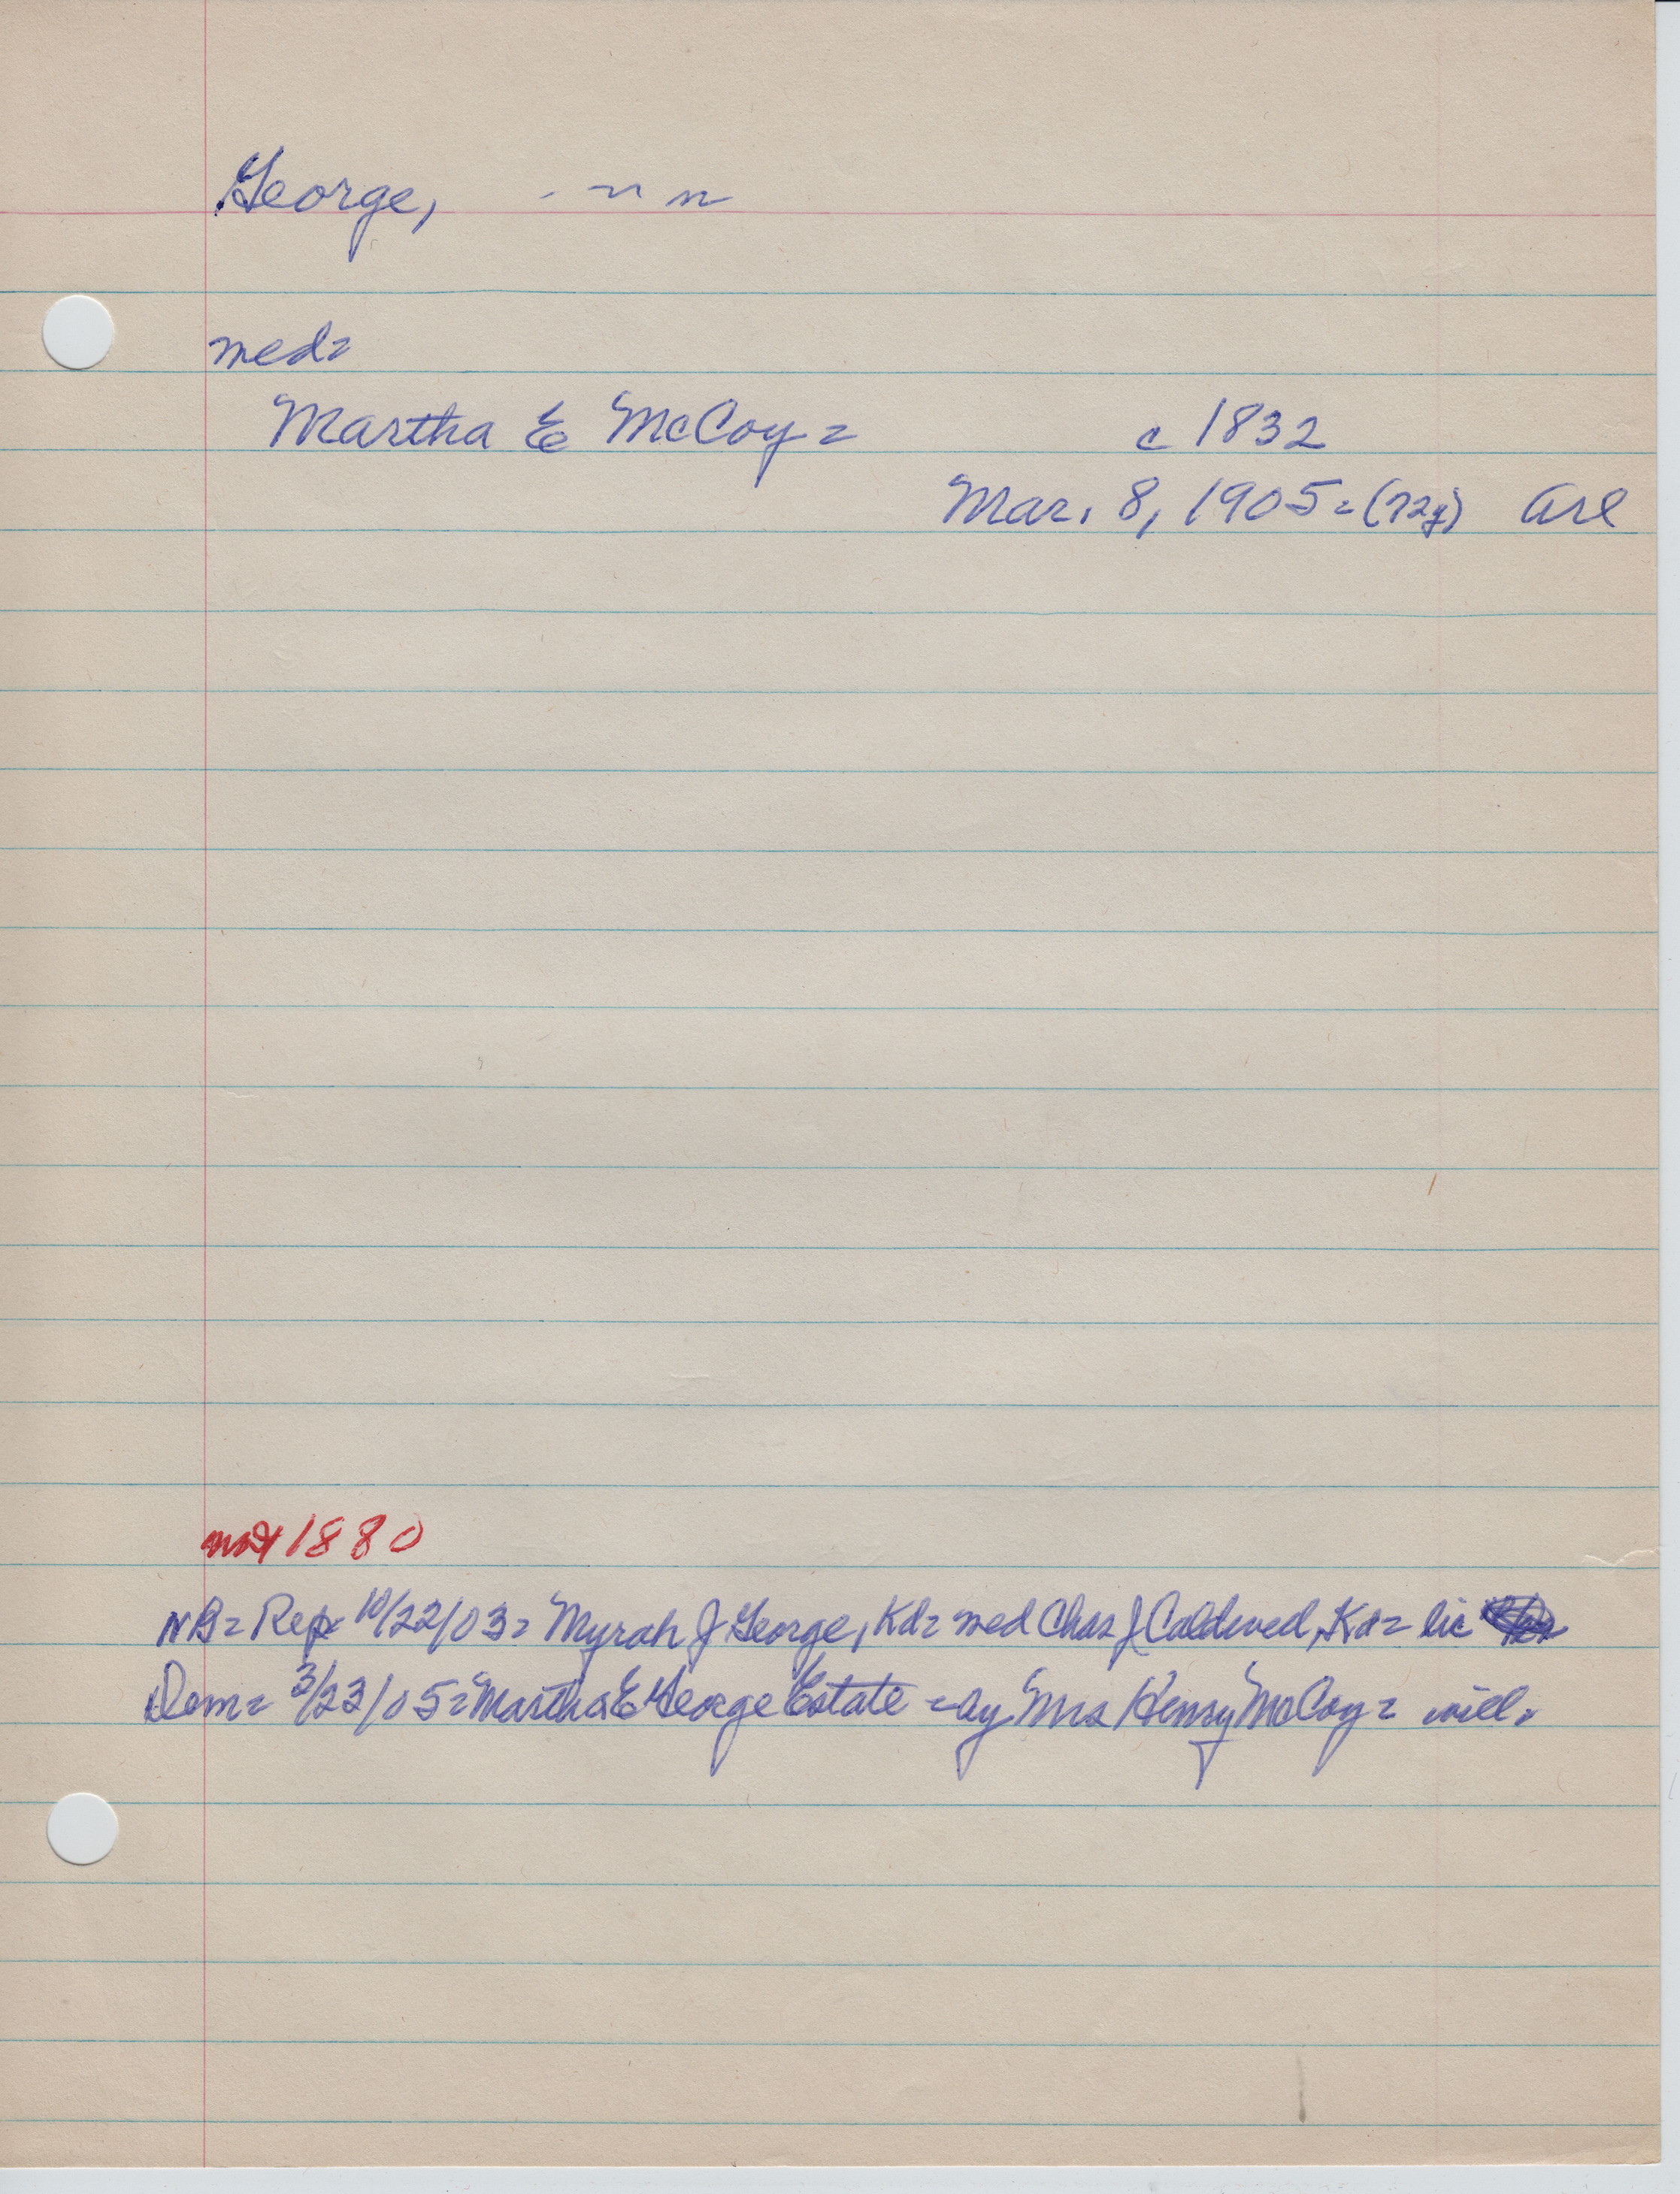 George,
med=
Martha E McCoy = c 1832
Mar. 8, 1905 = (72y) Arl
not 1880
NB = Rep = 10/22/03 = Myrah J George, Kd = med Chas J Caldwell, Kd = lic
Dem = 3/23/05 = Martha E George Estate = by Mrs Henry McCoy = will.